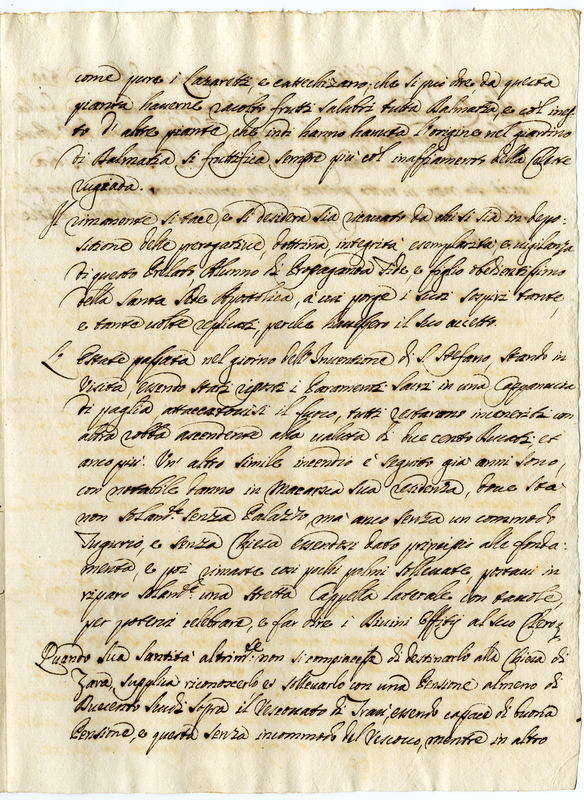 come pure i Lazaretti, e catechizano, che si può dire da questa
pianta haverne racolto frutti salubri tutta Dalmatia, e col ines-
to d'altre piante, che indi hanno havuta l'origine nel giardino
di Dalmatia si fruttifica sempre più col inaffiamento della Celeste
rugiada.
Il rimanente si tace, e si desidera sia ricavato da chi si sia in depo-
sitione delle prerogative, dottrina, integrità, esemplarità, e vigilanza
di questo Prelato Alunno di Propaganda Fide, e figlio obedientissimo
della Santa Sede Apostolica, à cui porge i suoi sospiri tante,
e tante volte replicati, perche havessero il suo accetto.
L'Estate passata nel giorno dell'Inventione di S. Stefano stando in
Visita, essendo stati riposti i Paramenti Sacri in una Capannuza
di paglia attaccattovisi il fuoco, tutti restarono inceneriti con
altra robba ascendente alla valuta di due cento Ducati et
anco più. Un'altro simile incendio è seguito già anni sono,
con notabile danno in Macarsca sua residenza, dove stà
non solam.te senza Palazzo, mà anco senza un commodo
Tugurio, e senza Chiesa essendosi dato principio alle fonda-
menta, e poi rimaste così pochi palmi sollevate, portavi in
riparo solam.te una stretta Cappella laterale con tavole
per potervi celebrare, e far dire i Divini Officij al suo Clero.
Quando Sua Santità altrim.te non si compiacesse di destinarlo alla Chiesa di
Zara, supplica riconoscerlo e sollevarlo con una Pensione almeno di
Ducento scudi sopra il Vescovato di Traù, essendo capace di buona
Pensione, e questa senza incommodo del Vescovo, mentre in altro